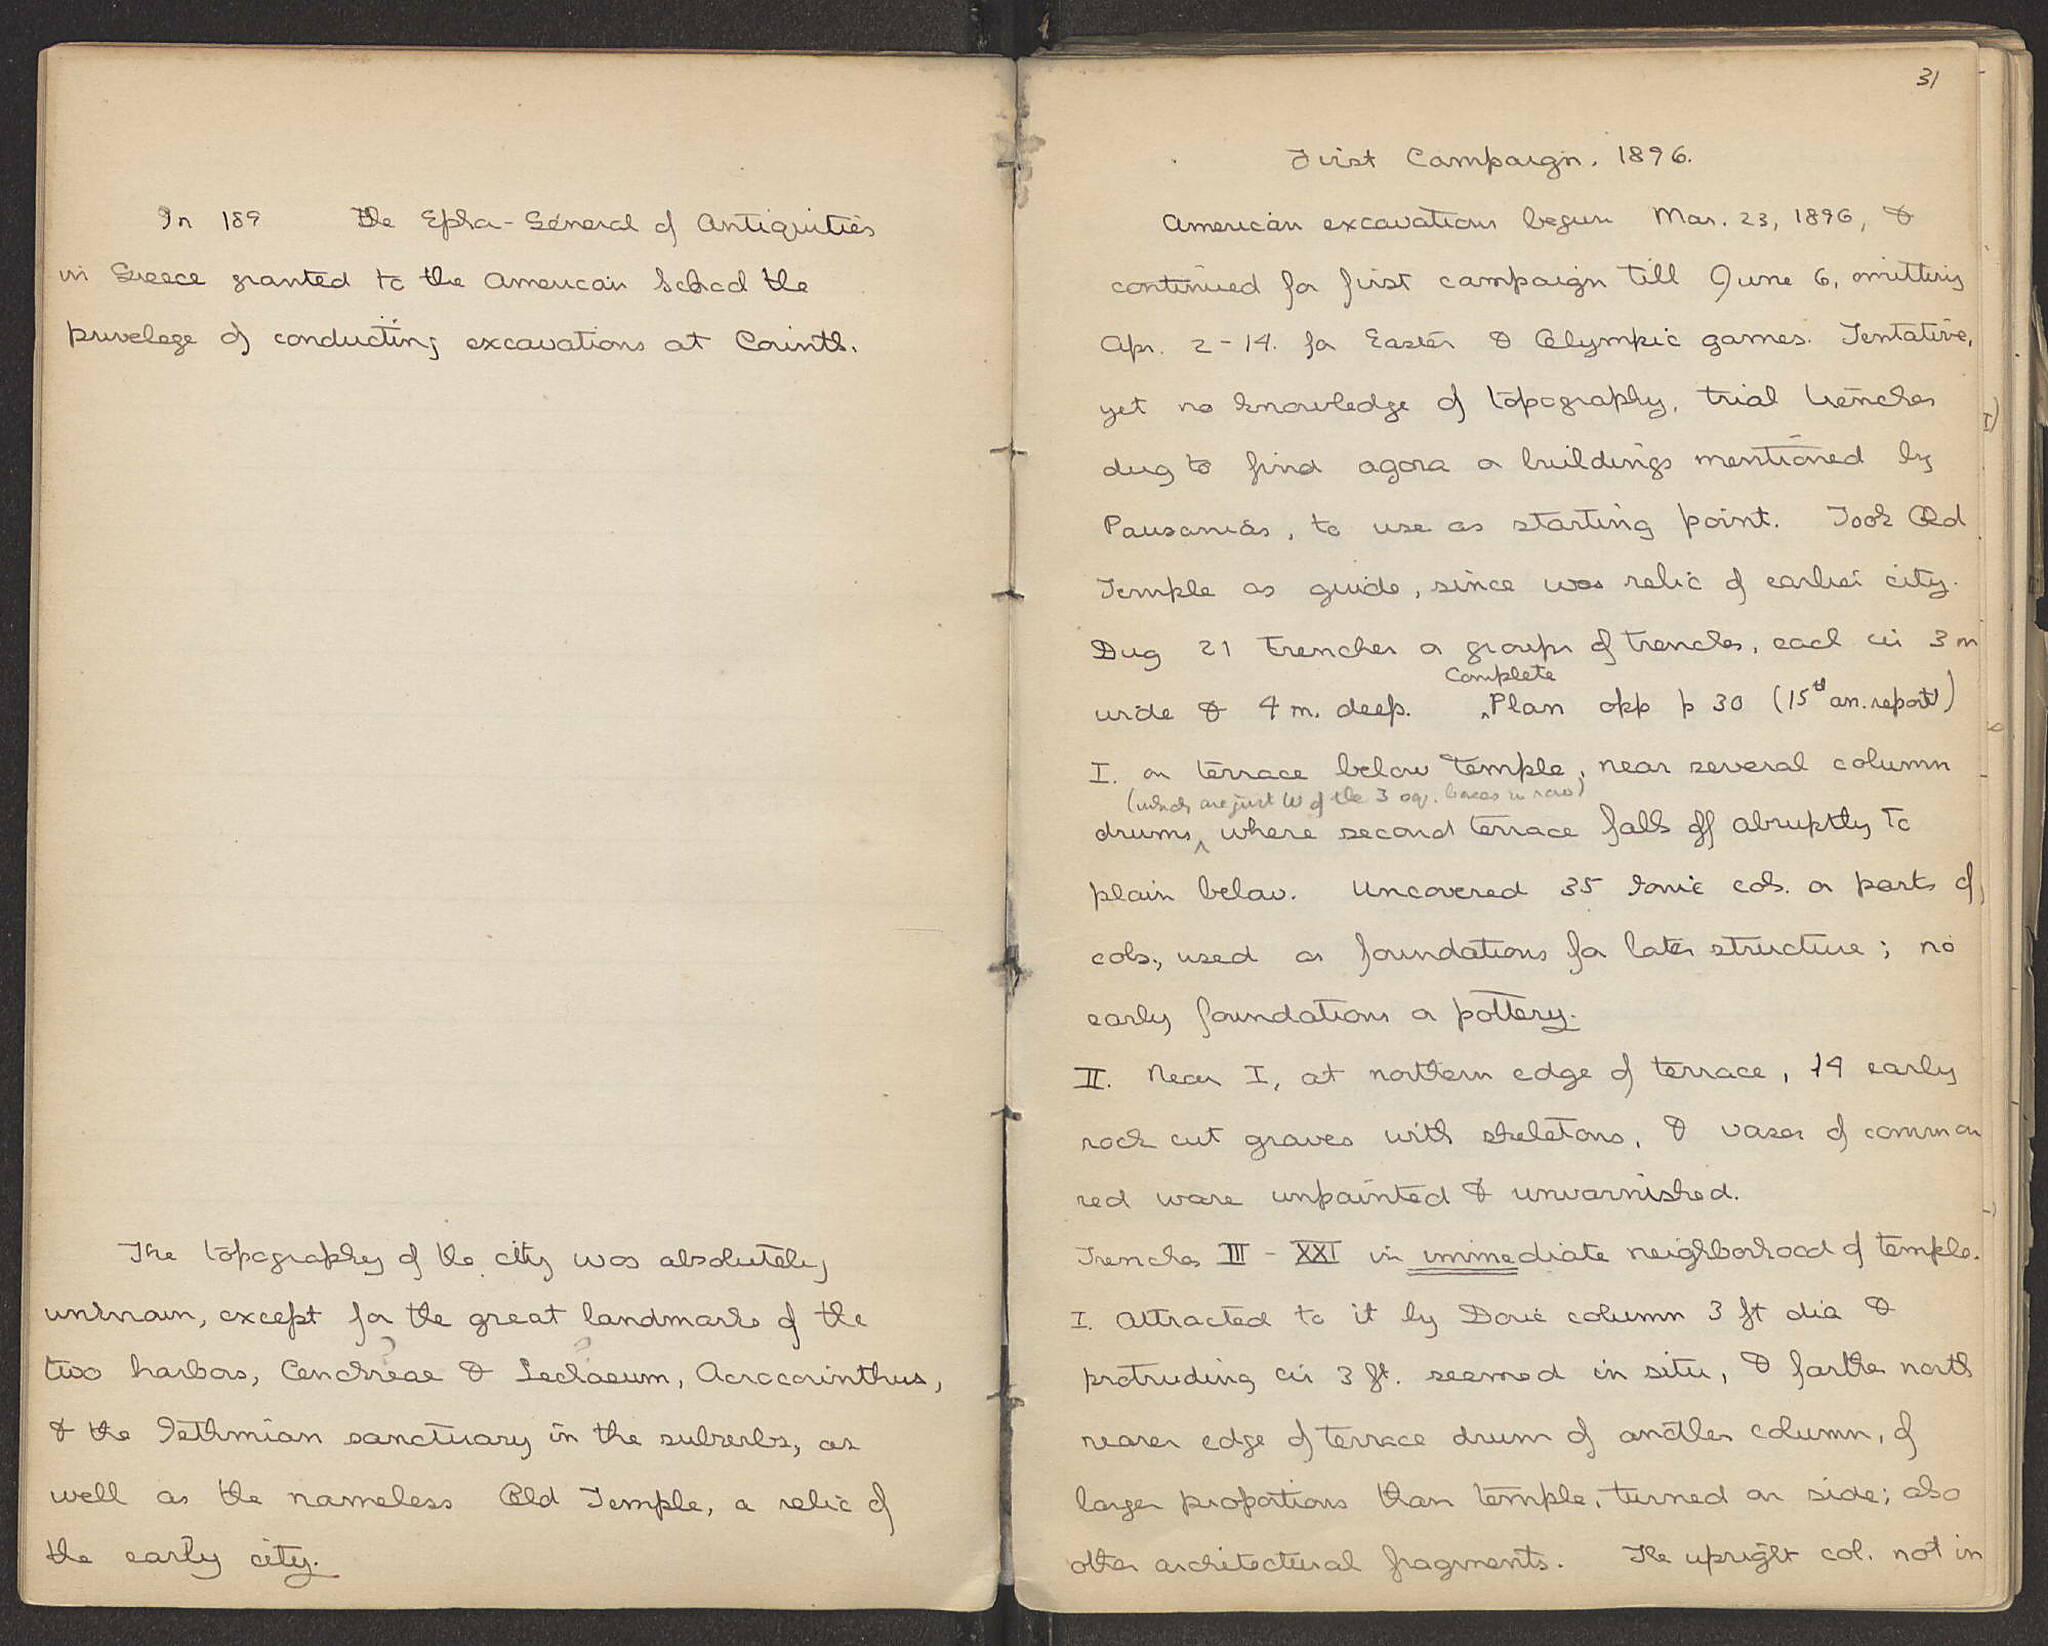 In 189 the Epho-General of Antiquities
in Greece granted to the American School the
privelege of conducting excavations at Corinth.
The topography of the city was absolutely
unknown, except for the great landmarks of the
two harbors, Cenchreae & Lechaeum, Acrocorinthus,
& the Isthmian sanctuary in the suburbs, as
well as the nameless Old Temple, a relic of
the early city.
31
First Campaign. 1896.
American excavations begun Mar. 23, 1896, &
continued for first campaign till June 6, omitting
Apr. 2-14. for Easter & Olympic games. Tentative,
yet no knowledge of topography, trial trenches
dug to find agora or buildings mentioned by
Pausanias, to use as starting point. Took Old
Temple as guide, since was relic of earlier city.
Dug 21 trenches or groups of trenches, each cir 3 m
Complete
wide & 4 m. deep. ^Plan opp p 30 (15th an. report)
I. on terrace below temple, near several column
(which are just W of the 3 sq. bases in row)
drums ^ where second terrace falls off abruptly to
plain below. Uncovered 35 Ionic cols. or parts of
cols., used as foundations for later structure; no
early foundations or pottery.
II. Near I, at northern edge of terrace, 14 early
rock cut graves with skeletons, & vases of common
red ware unpainted & unvarnished.
Trenches III - XXI in immediate neighborhood of temple.
I. Attracted to it by Doric column 3 ft dia &
protruding cir 3 ft. seemed in situ, & farther north
nearer edge of terrace drum of another column, of
larger proportions than temple, turned on side; also
other architectural fragments. The upright col. not in